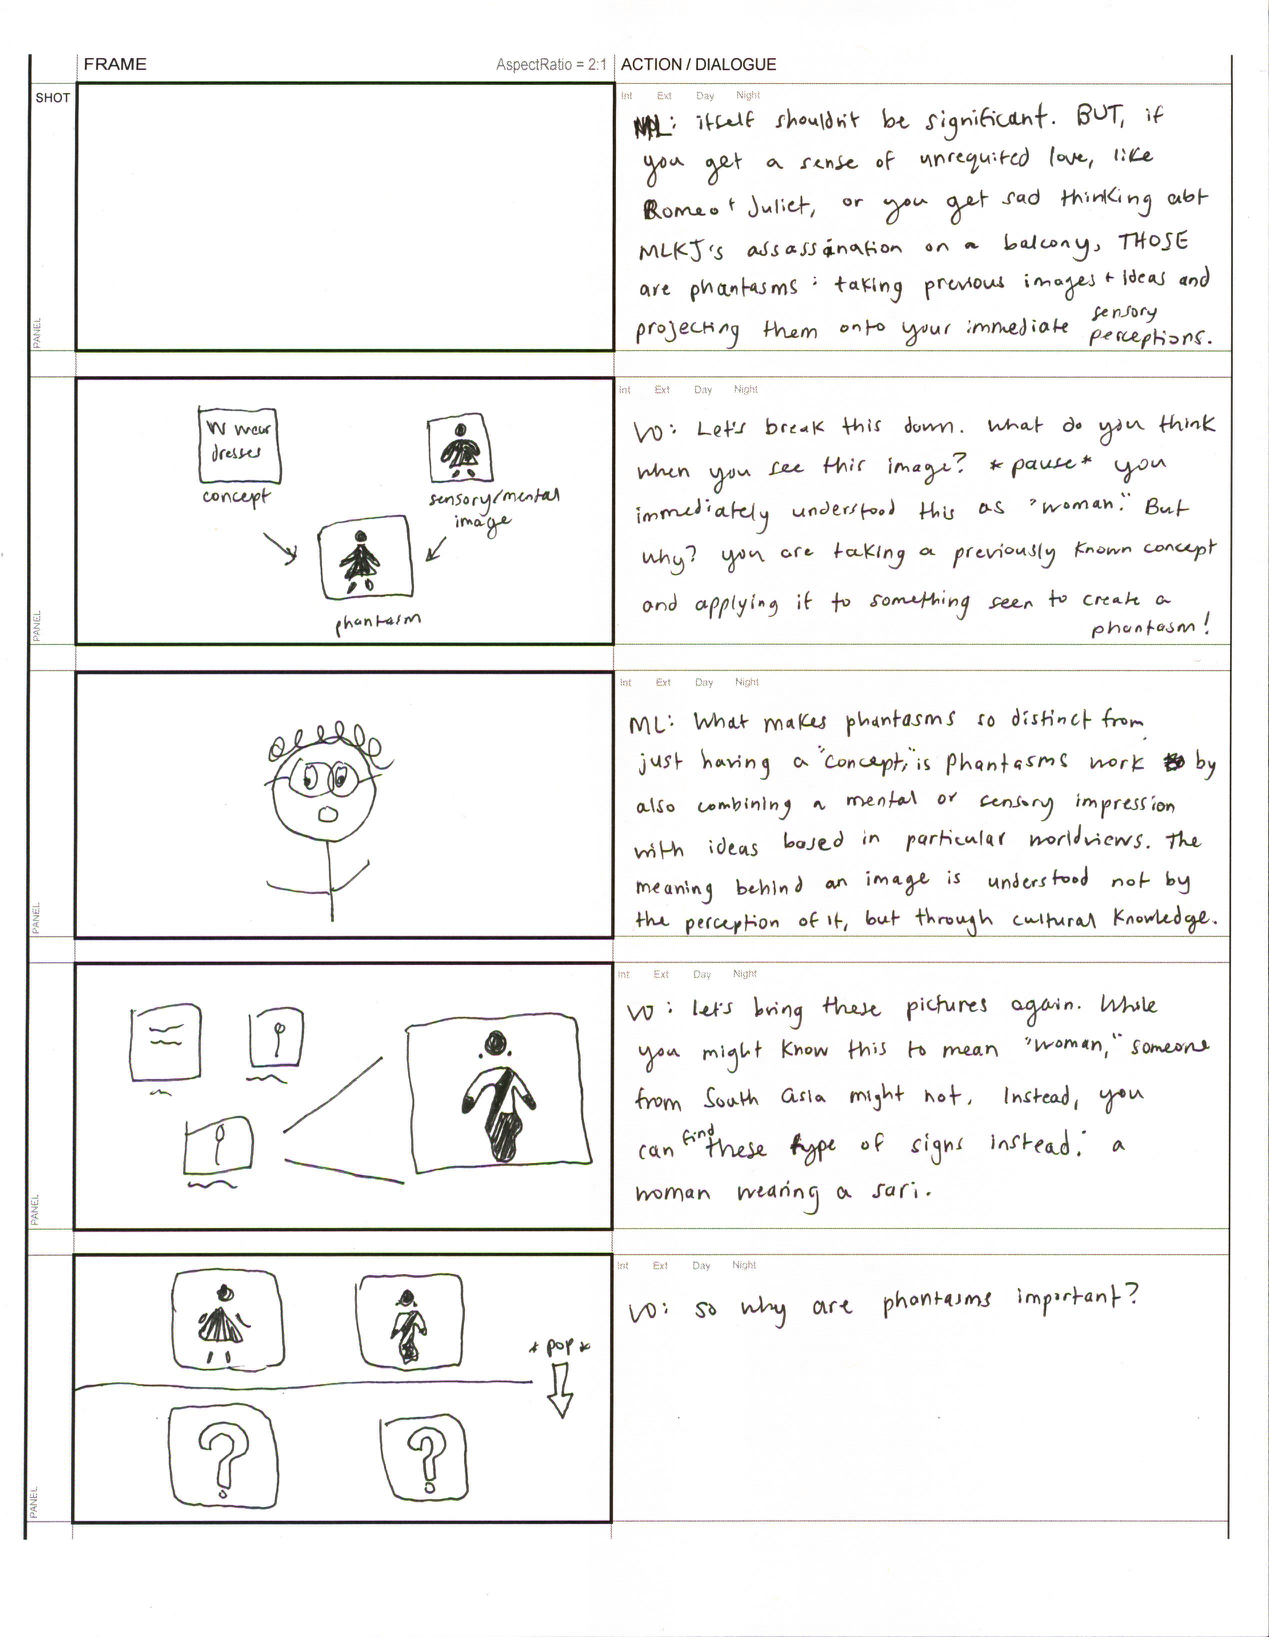 FRAME AspectRatio = 2:1 ACTION / DIALOGUE
SHOT
PANEL
Int Ext Day Night
ML: itself shouldn't be significant. BUT, if
you get a sense of unrequited love, like
Romeo + Juliet, or you get sad thinking abt
MLKJ's assassination on a balcony, THOSE
are phantasms: taking previous images + ideas and
projecting them onto your immediate sensory
perceptions.
PANEL
W wear
dresses
concept
sensory/mental
image
phantasm
Int Ext Day Night
VO: Let's break this down. What do you think
when you see this image? *pause* you
immediately understood this as "woman." But
why? you are taking a previously known concept
and applying it to something seen to create a
phantasm!
PANEL
Int Ext Day Night
ML: What makes phantasms so distinct from
just having a "concept," is phantasms work by
also combining a mental or sensory impression
with ideas based in particular worldviews. The
meaning behind an image is understood not by
the perception of it, but through cultural knowledge.
PANEL
Int Ext Day Night
VO: let's bring these pictures again. While
you might know this to mean "woman," someone
from South Asia might not. Instead, you
can find these type of signs instead: a
woman wearing a sari.
PANEL
*pop*
Int Ext Day Night
VO: so why are phantasms important?